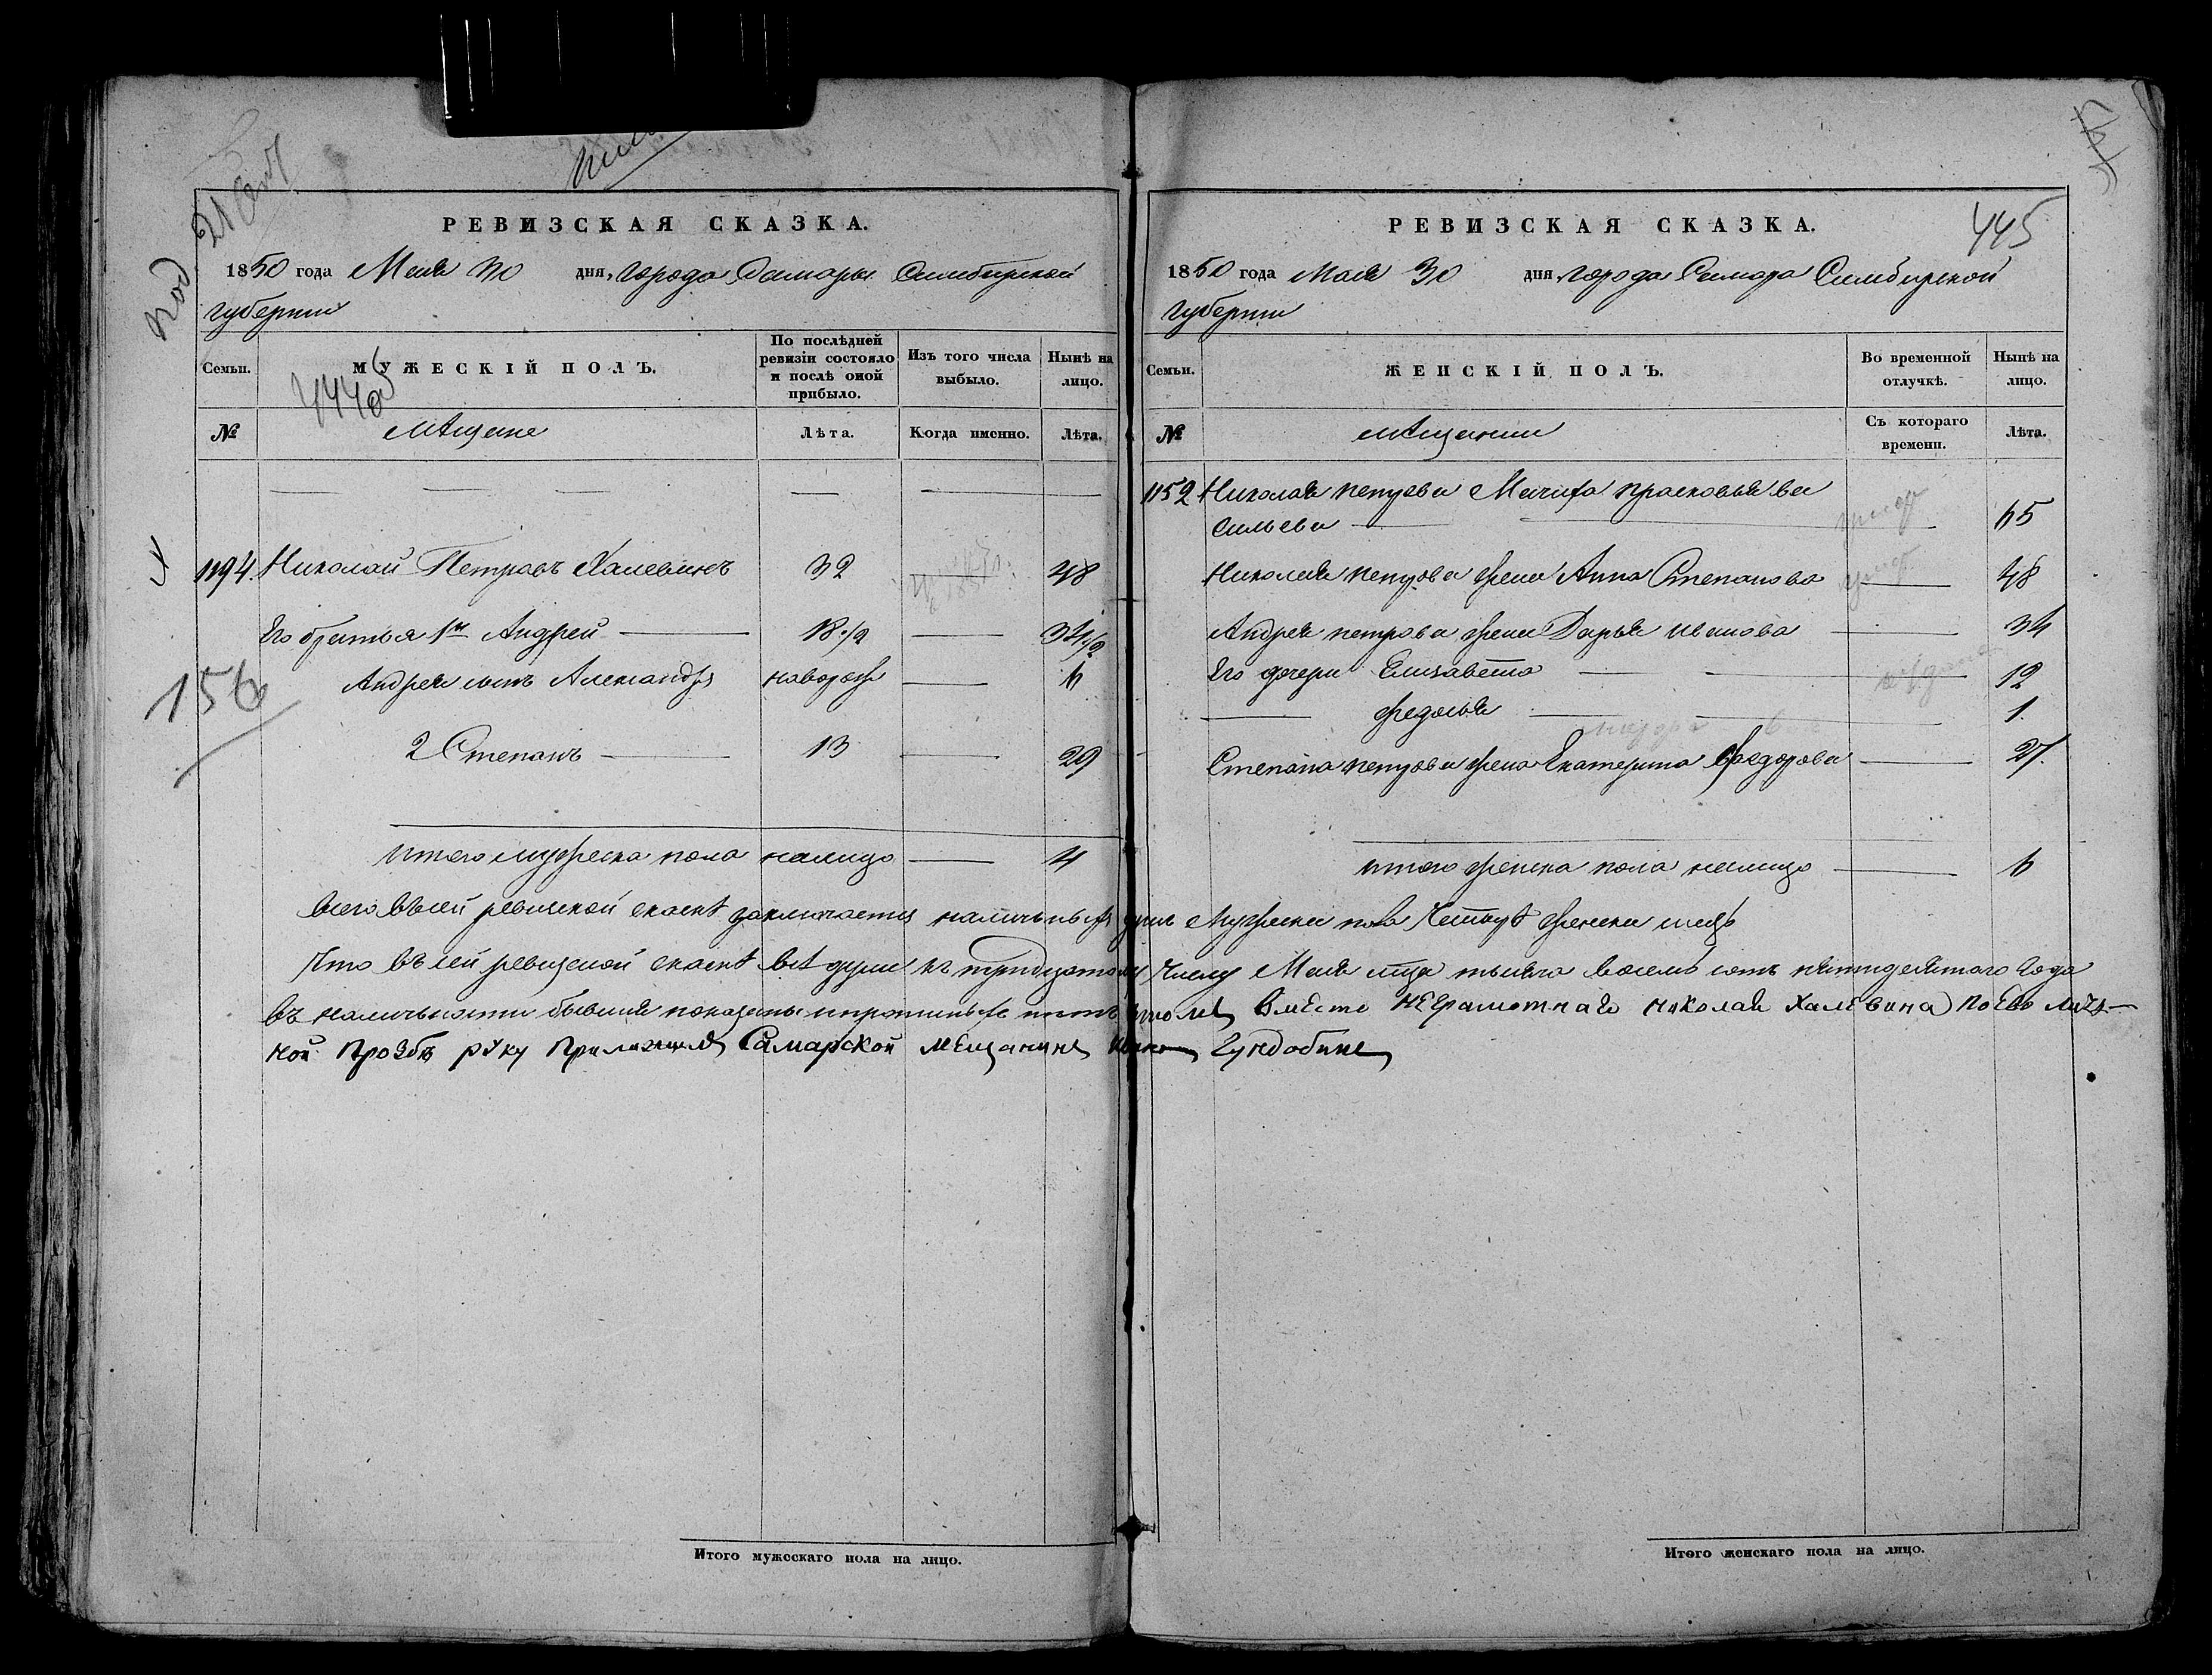 444об
РЕВИЗСКАЯ СКАЗКА.
1850 года Мая 30 дня, города Самары Симбирской
губернии
Семьи.
МУЖЕСКІЙ ПОЛЪ.
По послѣдней ревизіи состояло и послѣ оной прибыло.
Изъ того числа выбыло.
Нынѣ на лицо.
№
мѣщане
Лѣта.
Когда именно.
Лѣта.
1194. Николай Петровъ Халевинъ 32 48
Его братья 1й Андрей 18 1/2 34 1/2
Андрея сынъ Александръ новорож 6
156
2 Степанъ 13 29
итого мужеска пола налицо 4
Итого мужескаго пола на лицо.
445
РЕВИЗСКАЯ СКАЗКА.
1850 года Мая 30 дня города Самары Симбирской
губернии
Семьи.
ЖЕНСКІЙ ПОЛЪ.
Во временной отлучкѣ.
Нынѣ на лицо.
№
мѣщанки
Съ котораго времени.
Лѣта.
1152 Николая петрова Мачиха прасковья ва
сильева 65
Николая петрова жена Анна Степанова 48
Андрея петрова жена Дарья иванова 34
Его дочери Елизавета 12
1.
Степана петрова жена Екатерина Федорова 27.
итого женска пола налицо 6
всего въсей ревиской скаскѣ заключается наличныхъ душъ Мужеска пола Четыре женска шесть
Что въ сей ревизской скаскѣ всѣ души къ тридцатому Числу Мая мца тысяча восемь сотъ пятидесятаго Года
въ наличности бывшия показаны вместо неграмотнаго николая Халевина по Его лич-
ной прозбѣ руку приложилъ Самарской мещанинъ Гундобинъ
Итого женскаго пола на лицо.